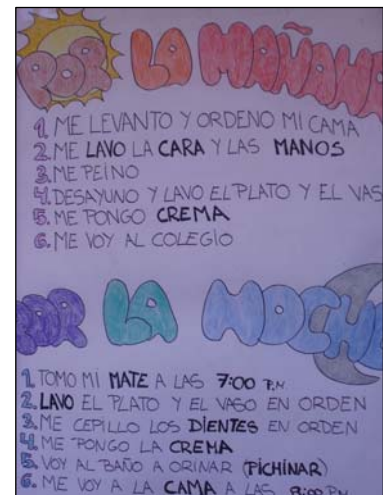 POR LA MAÑANA
1. ME LEVANTO Y ORDENO MI CAMA
2. ME LAVO LA CARA Y LAS MANOS
3. ME PEINO
4. DESAYUNO Y LAVO EL PLATO Y EL VAS
5. ME PONGO CREMA
6. ME VOY AL COLEGIO
POR LA NOCHE
1. TOMO MI MATE A LAS 7:00 P.M
2. LAVO EL PLATO Y EL VASO EN ORDEN
3. ME CEPILLO LOS DIENTES EN ORDEN
4. ME PONGO LA CREMA
5. VOY AL BAÑO A ORINAR (PICHINAR)
6. ME VOY A LA CAMA A LAS P.M.